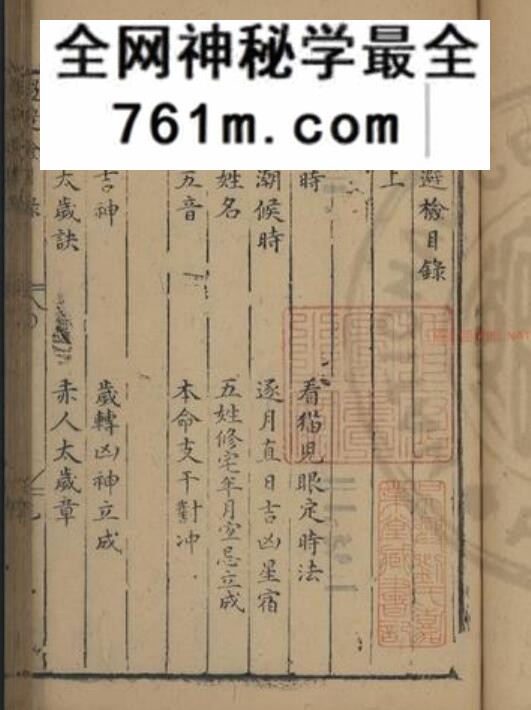 全网神秘学最全
761m.com
避檢目錄
上
時
看猫児眼定時法
潮候時
逐月直日吉凶星宿
姓名
五姓修宅年月宜忌立成
五音
本命支干對冲
吉神
歲轉凶神立成
太歲訣
赤人太歲章